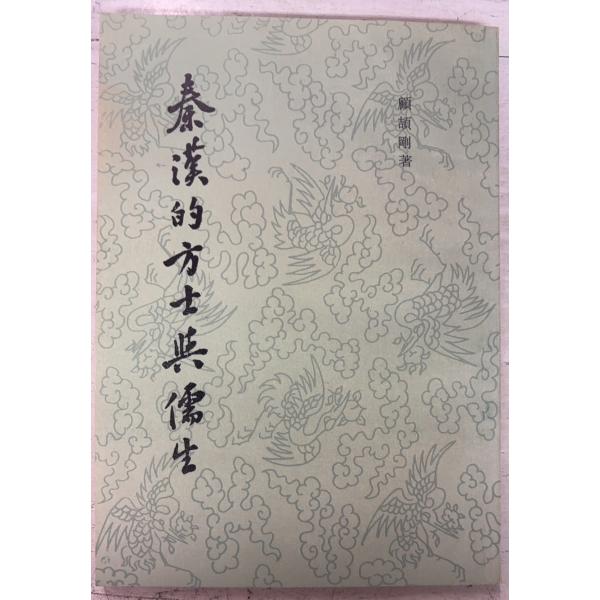 顧頡剛著
秦漢的方士與儒生